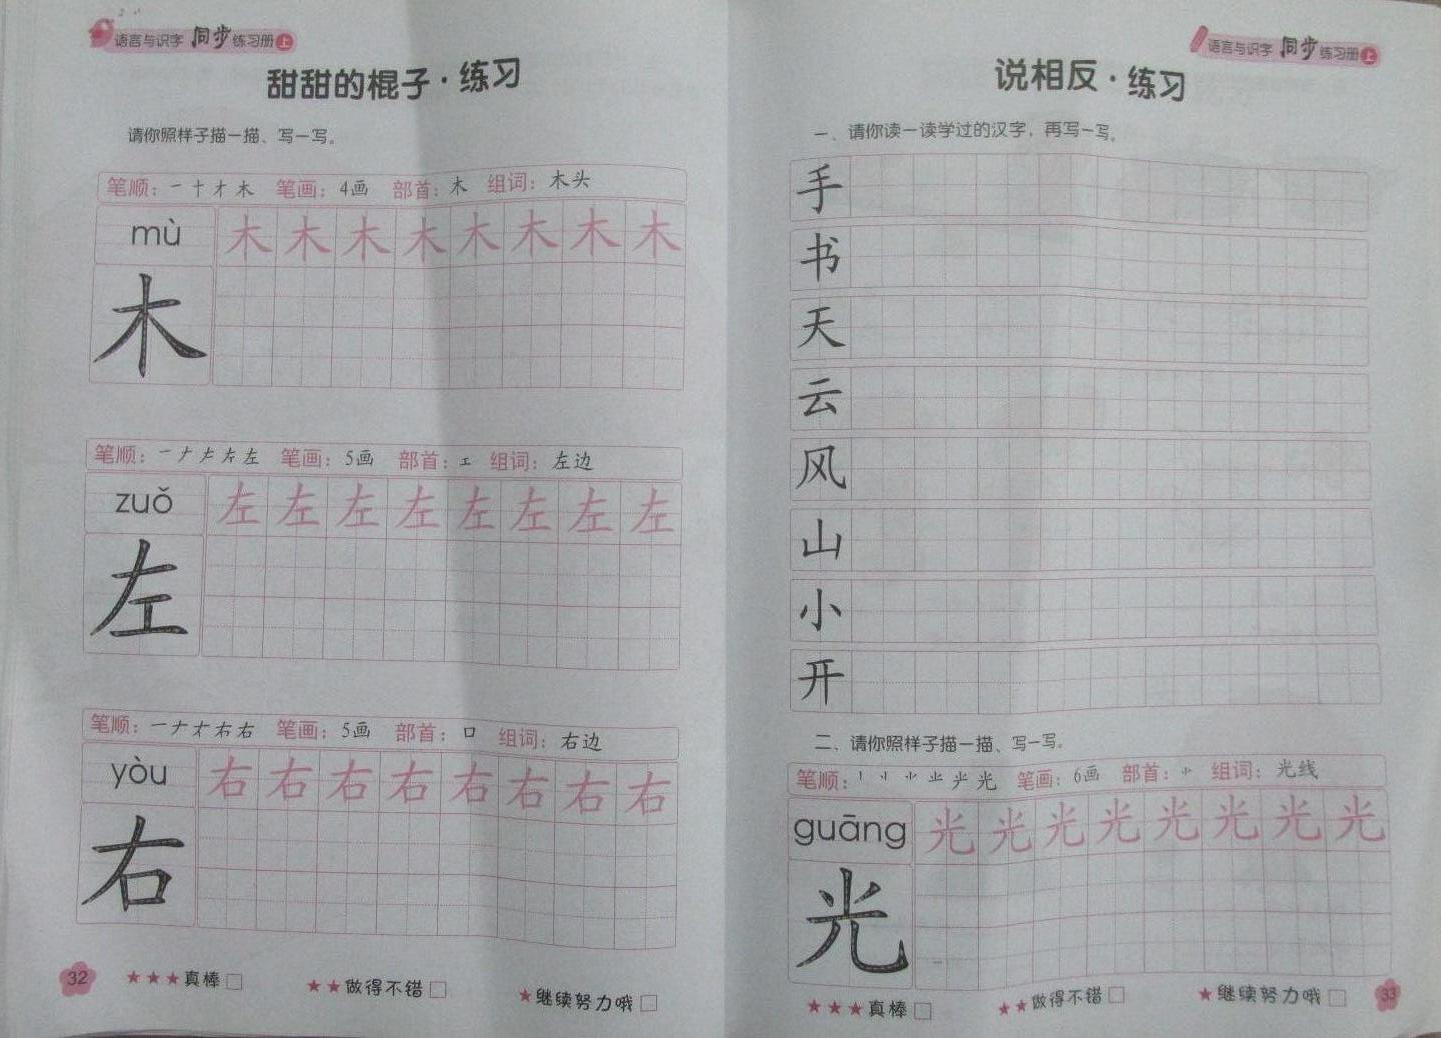 语言与识字 同步 练习册 上
甜甜的棍子·练习
请你照样子描一描、写一写。
笔顺：一 十 才 木 笔画：4画 部首：木 组词：木头
mù 木 木 木 木 木 木 木 木
木
笔顺：一 ナ 𠂇 左 左 笔画：5画 部首：工 组词：左边
zuǒ 左 左 左 左 左 左 左 左
左
笔顺：一 ナ 右 右 笔画：5画 部首：口 组词：右边
yòu 右 右 右 右 右 右 右 右
右
32 ★★★真棒□ ★★做得不错□ ★继续努力哦□
语言与识字 同步 练习册 上
说相反·练习
一、请你读一读学过的汉字，再写一写。
手
书
天
云
风
山
小
开
二、请你照样子描一描、写一写。
笔顺：光 笔画：6画 部首：⺌ 组词：光线
guāng 光 光 光 光 光 光 光 光
光
★★★真棒□ ★★做得不错□ ★继续努力哦□ 33